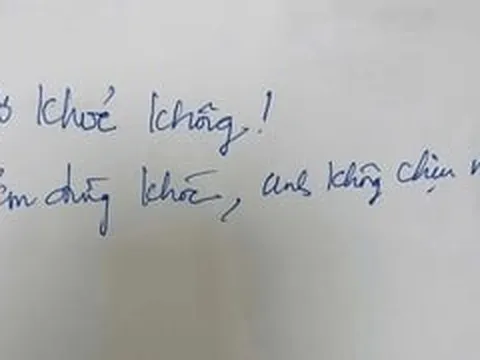 khoẻ không!
em đừng khóc, anh không chịu